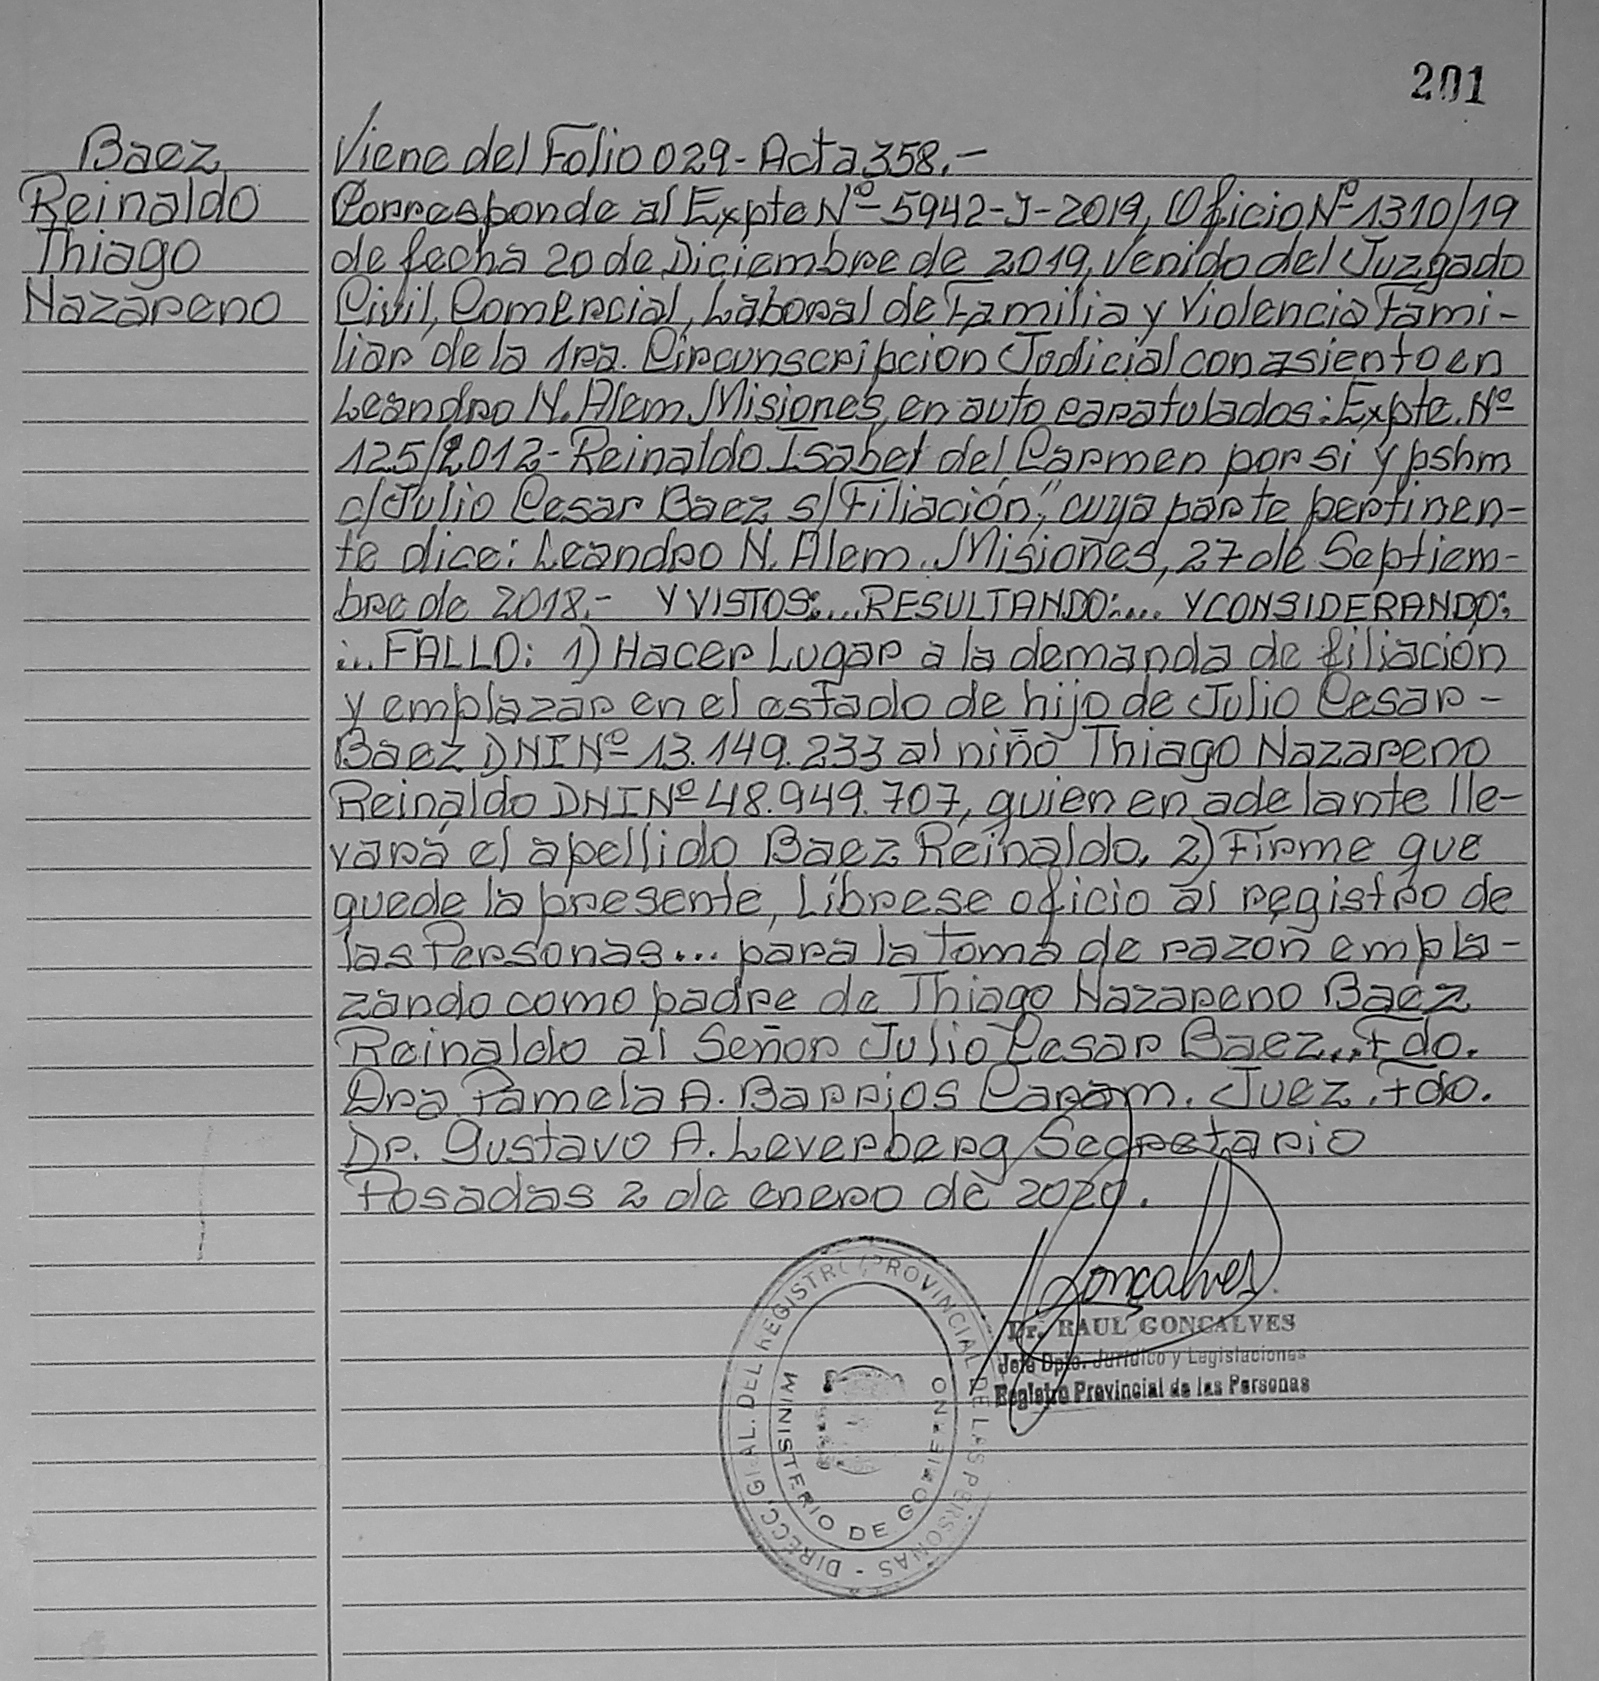 201
Baez
Reinaldo
Thiago
Nazareno
Viene del Folio 029- Acta 358.-
Corresponde al Expte Nº 5942-J-2019, Oficio Nº 1310/19
de fecha 20 de Diciembre de 2019, venido del Juzgado
Civil, Comercial, Laboral de Familia y Violencia Fami-
liar de la 1ra. Circunscripcion Judicial con asiento en
Leandro N. Alem Misiones, en auto caratulados: Expte. Nº
125/2012- Reinaldo Isabel del Carmen por si y pshm
c/ Julio Cesar Baez s/ Filiación", cuya parte pertinen-
te dice: Leandro N. Alem. Misiones, 27 de Septiem-
bre de 2018.- Y VISTOS:... RESULTANDO:.... Y CONSIDERANDO:
:... FALLO: 1) Hacer Lugar a la demanda de filiación
y emplazar en el estado de hijo de Julio Cesar-
Baez DNI Nº 13.149.233 al niño Thiago Nazareno
Reinaldo DNI Nº 48.949.707, quien en adelante lle-
vará el apellido Baez Reinaldo. 2) Firme que
quede la presente, Líbrese oficio al registro de
las Personas... para la toma de razon empla-
zando como padre de Thiago Nazareno Baez
Reinaldo al Señor Julio Cesar Baez... Fdo.
Dra Pamela A. Barrios Caram. Juez. Fdo.
Dr. Gustavo A. Leverberg Secretario
Posadas 2 de enero de 2020.
Goncalves
Dr. RAUL GONCALVES
Jefe Dpto. Jurídico y Legislaciones
Registro Provincial de las Personas
DIRECC. GRAL. DEL REGISTRO PROVINCIAL DE LAS PERSONAS -
MINISTERIO DE GOBIERNO